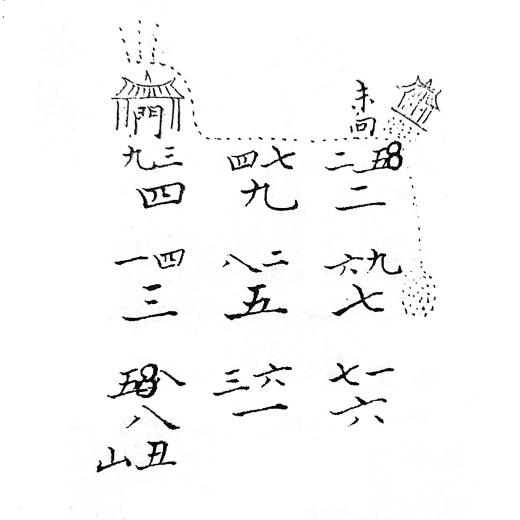 門 未向
九三 四七 二五8
四 九 二
一四 八二 六九
三 五 七
五8八 三六 七一
八 一 六
山丑